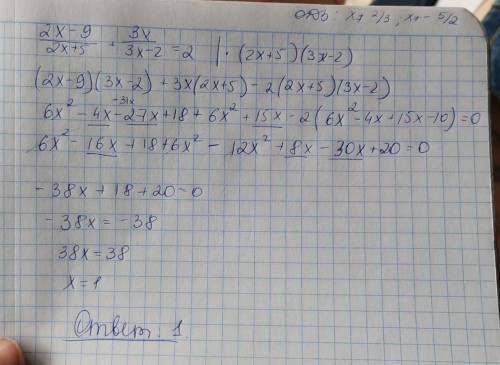 ОДЗ: x ≠ 2/3; x ≠ - 5/2
(2x-9)/(2x+5) + 3x/(3x-2) = 2 | · (2x+5)(3x-2)
(2x-9)(3x-2) + 3x(2x+5) - 2(2x+5)(3x-2)
-31x
6x² - 4x - 27x + 18 + 6x² + 15x - 2(6x² - 4x + 15x - 10) = 0
6x² - 16x + 18 + 6x² - 12x² + 8x - 30x + 20 = 0
- 38x + 18 + 20 = 0
- 38x = - 38
38x = 38
x = 1
Ответ: 1.